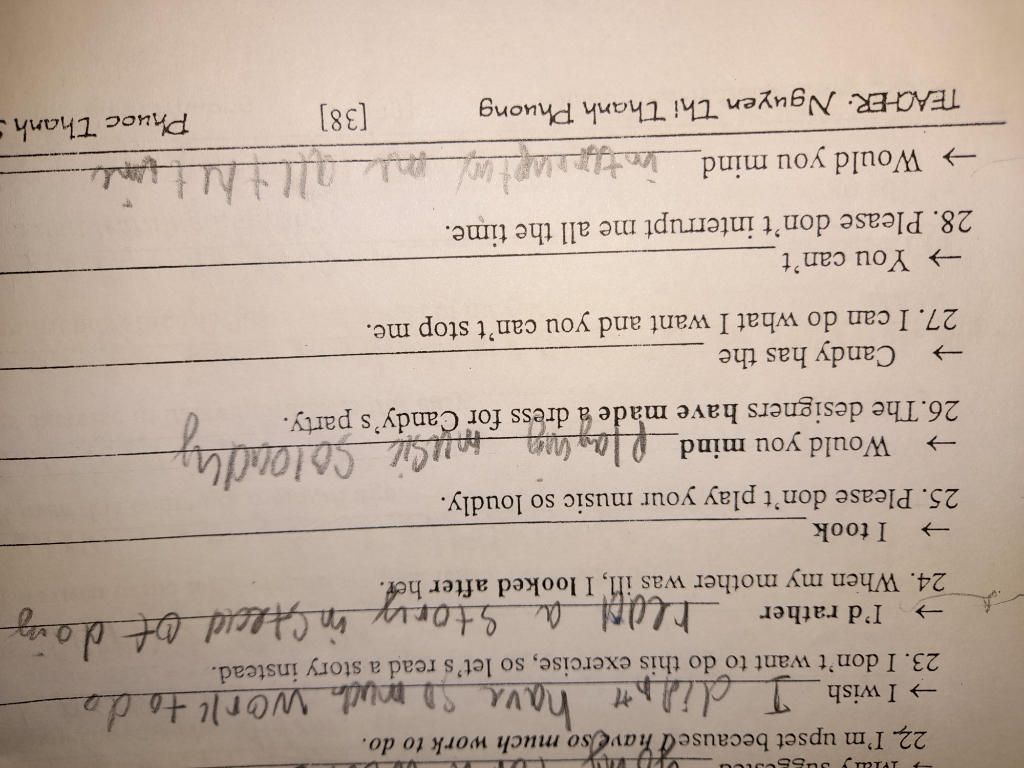 → Mary suggested
22. I'm upset because I have so much work to do.
→ I wish I didn't have so much work to do
23. I don't want to do this exercise, so let's read a story instead.
→ I'd rather read a story instead of doing
24. When my mother was ill, I looked after her.
→ I took
25. Please don't play your music so loudly.
→ Would you mind playing music so loudly
26. The designers have made a dress for Candy's party.
→ Candy has the
27. I can do what I want and you can't stop me.
→ You can't
28. Please don't interrupt me all the time.
→ Would you mind me all the time
TEACHER: Nguyen Thi Thanh Phuong [38] Phuoc Thanh